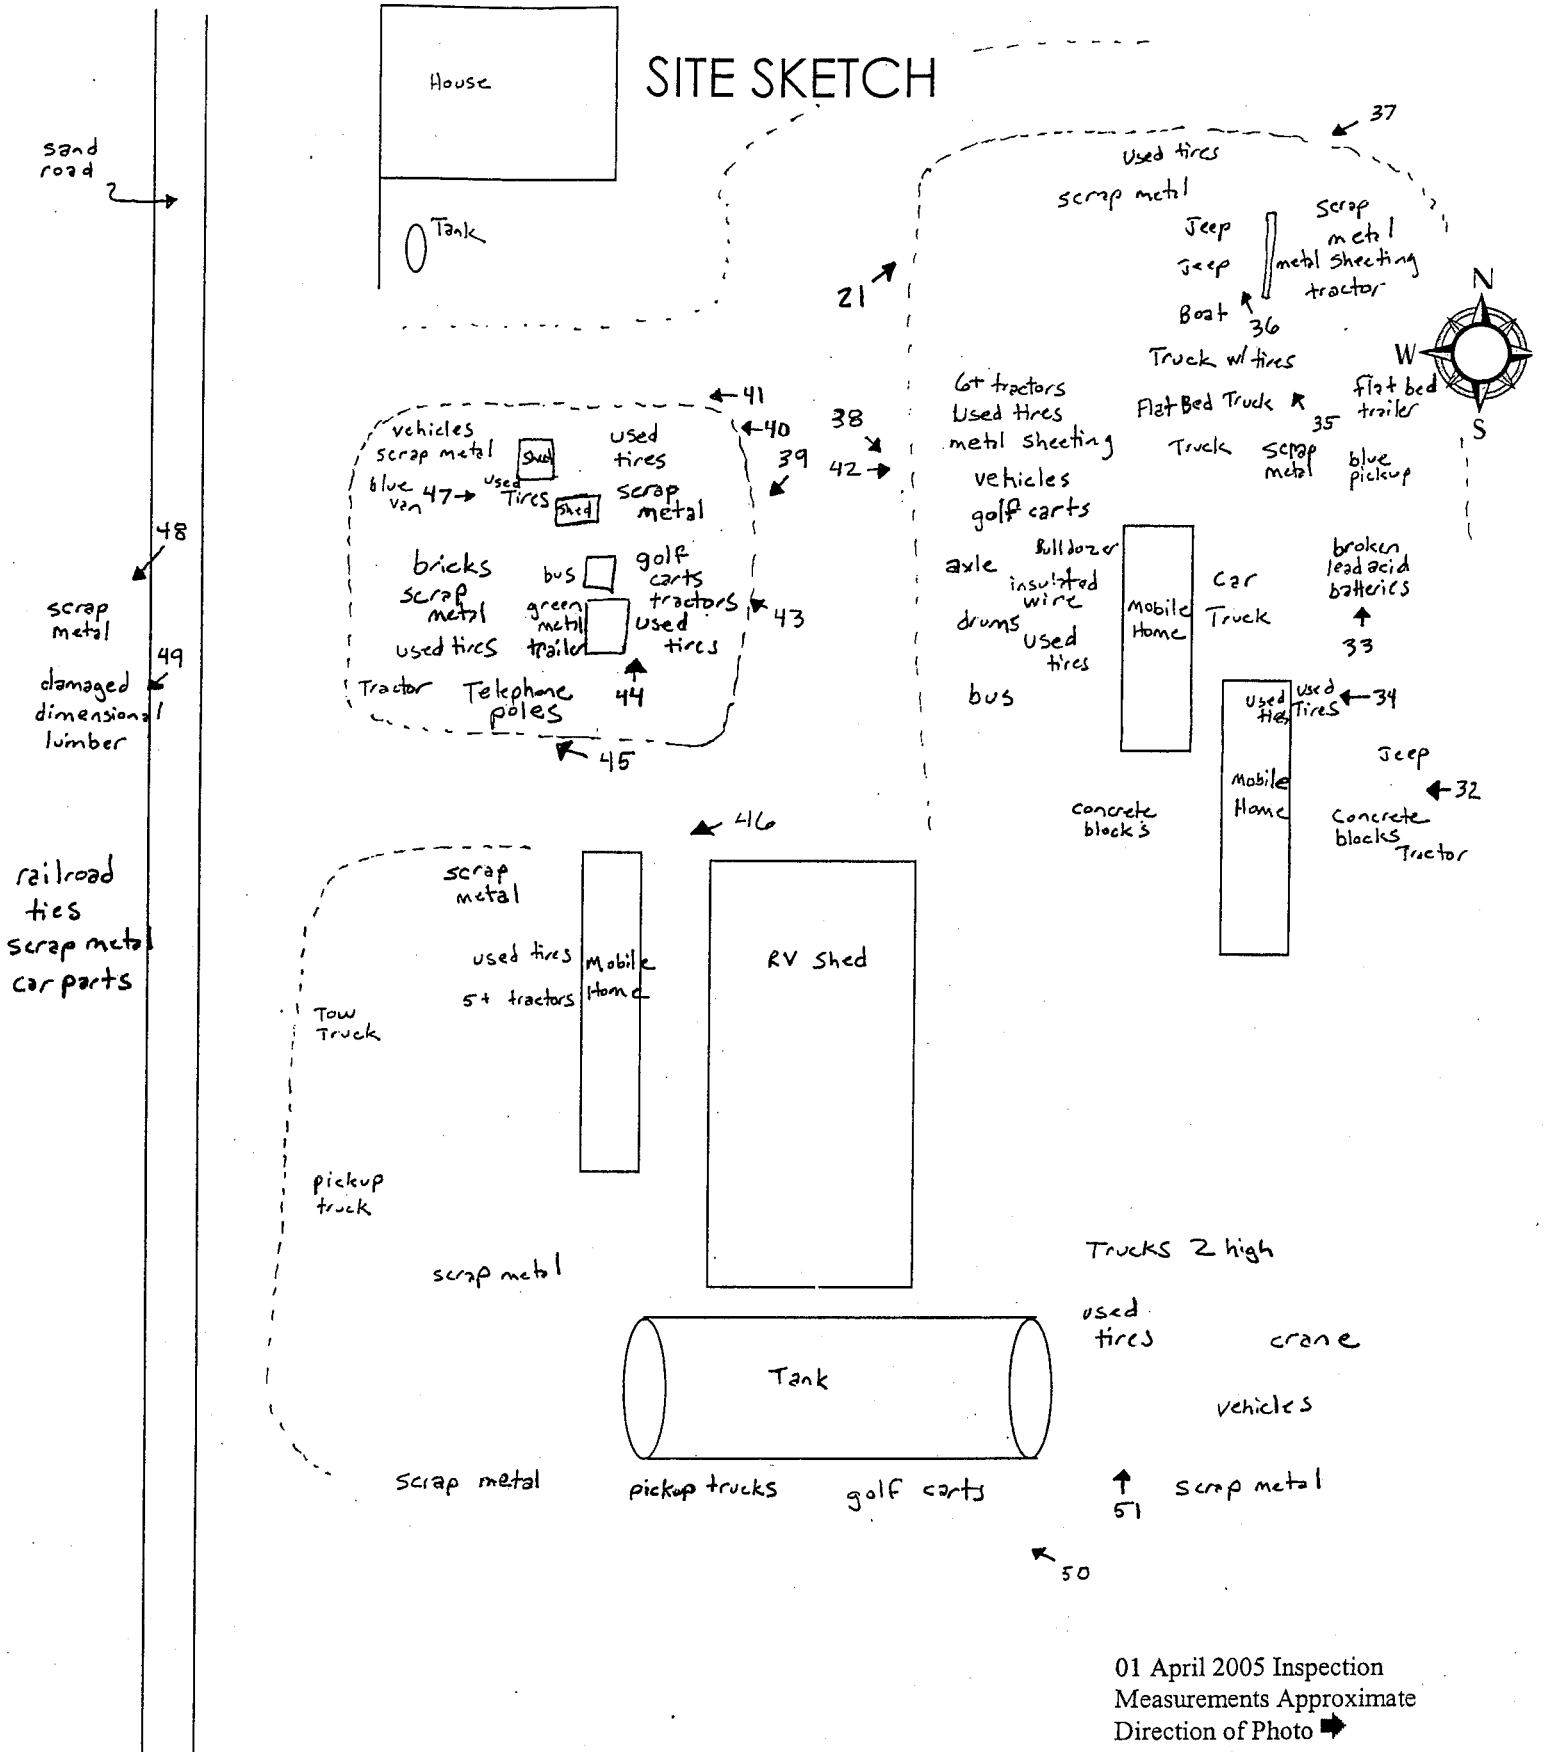 SITE SKETCH
House
sand
road
Tank
37
used tires
scrap metal
Jeep
Jeep
Boat
scrap
metal
metal sheeting
tractor
36
21
N
W
S
Truck w/ tires
6+ tractors
used tires
metal sheeting
vehicles
golf carts
Flat Bed Truck
35
flat bed
trailer
Truck
scrap
metal
blue
pickup
41
40
38
39
42
vehicles
scrap metal
shed
used
tires
blue
van
47
used
Tires
shed
scrap
metal
48
bricks
scrap
metal
used tires
bus
green
metal
trailer
golf
carts
tractors
used
tires
43
Tractor
Telephone
poles
44
45
scrap
metal
49
damaged
dimensional
lumber
axle
Bulldozer
insulated
wire
drums
used
tires
bus
Mobile
Home
car
Truck
broken
lead acid
batteries
33
used
tires
used
Tires
34
Jeep
32
Mobile
Home
concrete
blocks
concrete
blocks
Tractor
46
railroad
ties
scrap metal
car parts
scrap
metal
used tires
5+ tractors
Mobile
Home
RV shed
Tow
Truck
pickup
truck
scrap metal
Trucks 2 high
used
tires
crane
vehicles
Tank
scrap metal
pickup trucks
golf carts
51
scrap metal
50
01 April 2005 Inspection
Measurements Approximate
Direction of Photo